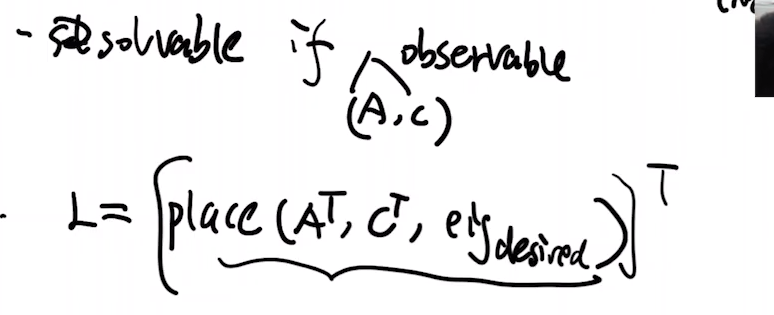 - solvable if (A, C) observable
L = [place (Aᵀ, Cᵀ, eig desired)]ᵀ